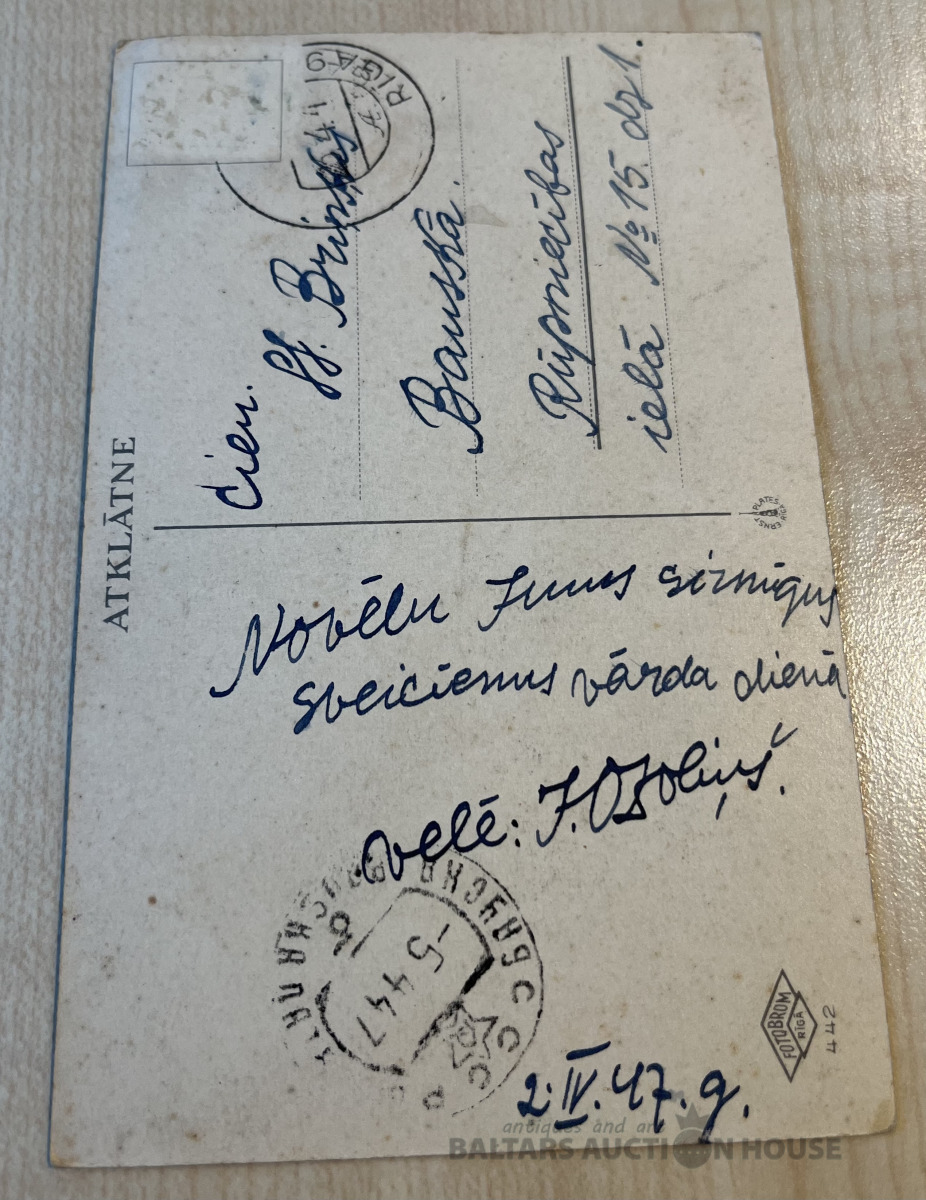 ATKLĀTNE
Novēlu Jums sirmīgus
sveicienus vārda dienā
vēlē: J. Ozoliņš.
2. IV. 47. g.
Cien.
Bauskā.
Rūpniecības
ielā № 15. dz 1.
RIGA 9
СССР БАУСКА BAUSKA
-5 4 47
ERNST PLATES RIGA
FOTOBROM
RĪGĀ
442
antiques and art
BALTARS AUCTION HOUSE